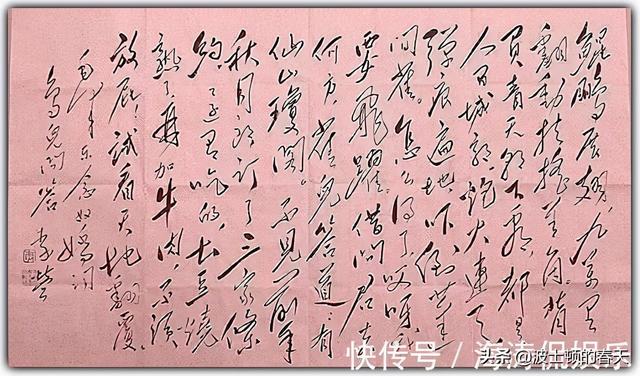 鲲鹏展翅，九万里
翻动扶摇羊角。背
负青天朝下看，都是
人间城郭。炮火连天
弹痕遍地，吓倒蓬
间雀。怎么得了哎呀我
要飞跃。借问君去
何方，雀儿答道：有
仙山琼阁。不见前年
秋月朗订了三家条
约。还有吃的，土豆烧
熟了，再加牛肉。不须
放屁！试看天地翻覆。
毛泽东念奴娇词
鸟儿问答
快传号/海涛侃娱乐
头条@波士顿的春天